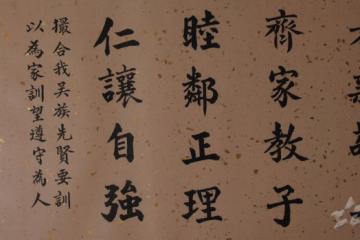 齊家教子
睦鄰正理
仁讓自強
撮合我吳族先賢要訓
以為家訓望遵守為人